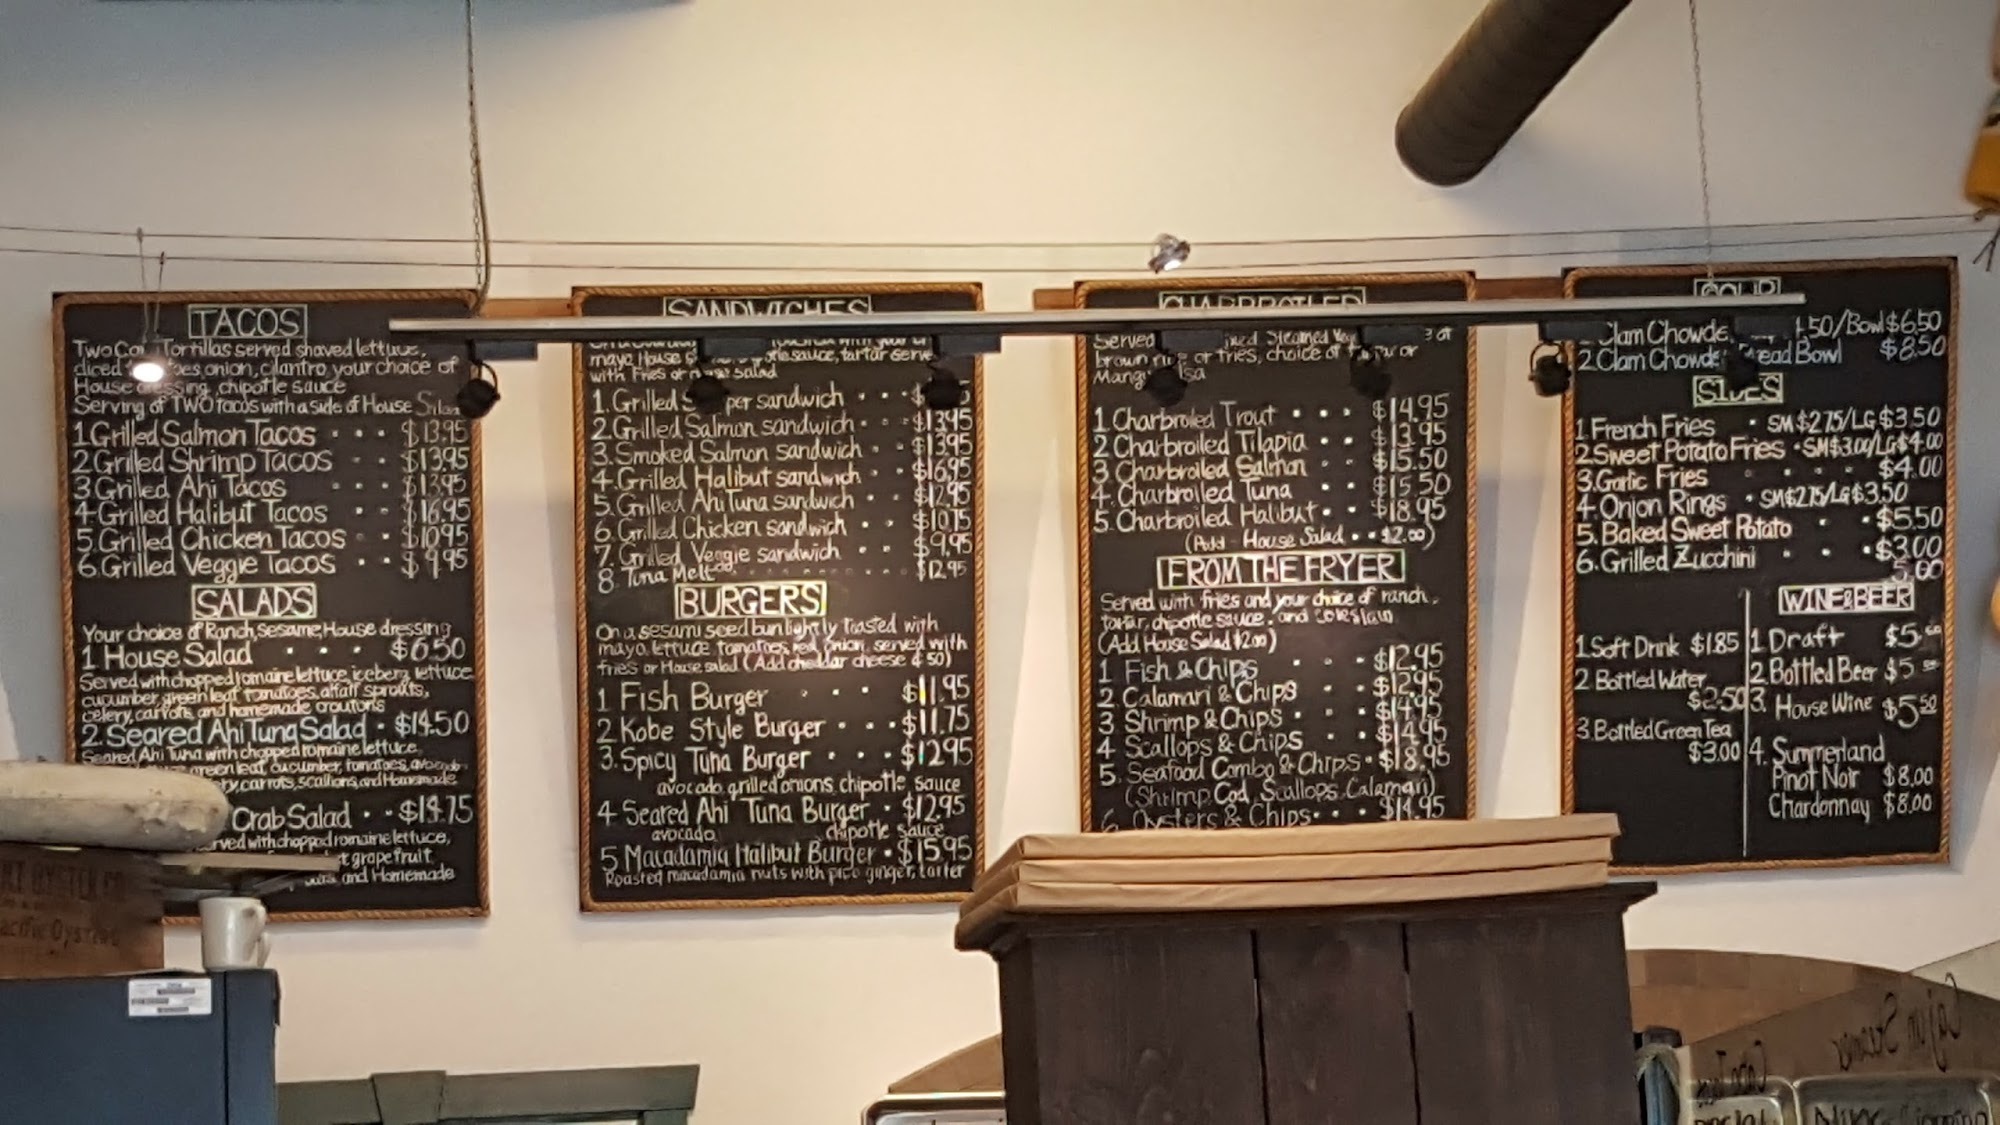 TACOS
Two Tortillas served shaved lettuce,
onion, cilantro, your choice of
House chipotle sauce
Serving of TWO tacos with a side of House
1 Grilled Salmon Tacos . . . $13.95
2 Grilled Shrimp Tacos . . $13.95
3 Grilled Ahi Tacos . . . $13.95
4 Grilled Halibut Tacos . . $16.95
5 Grilled Chicken Tacos . . $10.95
6. Grilled Veggie Tacos . . $9.95
SALADS
Your choice of Ranch, sesame, House dressing
1 House Salad . . . $6.50
Served with chopped romaine lettuce, iceberg lettuce
cucumber, green leaf tomatoes, alfalf sprouts,
celery, carrots, and homemade croutons
2. Seared Ahi Tuna Salad . $14.50
Seared Ahi Tuna with chopped romaine lettuce,
green leaf, cucumber, tomatoes, avocado
carrots, scallions, and Homemade
Crab Salad . . $14.75
with chopped romaine lettuce,
grapefruit
and Homemade
SANDWICHES
mayo House sauce, tartar
with Fries or salad
1. Grilled sandwich . . .
2. Grilled Salmon sandwich . . $13.95
3. Smoked Salmon sandwich . . $13.95
4. Grilled Halibut sandwich . . $16.95
5. Grilled Ahi Tuna sandwich . . $12.95
6 Grilled Chicken sandwich . . $10.75
7. Grilled Veggie sandwich . . $9.95
8. Tuna Melt . . . $12.95
BURGERS
On a sesami seed bun lightly toasted with
mayo, lettuce tomatoes, red onion, served with
fries or House salad (Add cheddar cheese $.50)
1 Fish Burger . . . $11.95
2 Kobe Style Burger . . . $11.75
3. Spicy Tuna Burger . . . $12.95
avocado, grilled onions, chipotle sauce
4 Seared Ahi Tuna Burger . $12.95
avocado chipotle sauce
5 Macadamia Halibut Burger . $15.95
Roasted macadamia nuts with ginger,
CHARBROILED
Served Steamed
brown or fries, choice of or
1 Charbroiled Trout . . . $14.95
2 Charbroiled Tilapia . . $13.95
3 Charbroiled Salmon . . $15.50
4. Charbroiled Tuna . . $15.50
5. Charbroiled Halibut . . $18.95
(Add - House Salad . . $2.00)
FROM THE FRYER
Served with fries and your choice of ranch,
tartar, chipotle sauce, and coleslaw
(Add House Salad $2.00)
1 Fish & Chips . . $12.95
2. Calamari & Chips . . $12.95
3 Shrimp & Chips . . $14.95
4 Scallops & Chips . . $14.95
5. Seafood Combo & Chips . $18.95
(Shrimp, Cod, Scallops, Calamari)
6 Oysters & Chips . . . $14.95
SOUP
Clam Bowl $6.50
2 Clam Bowl $8.50
SIDES
1 French Fries . SM $2.75/LG $3.50
2 Sweet Potato Fries . SM $3.00/LG $4.00
3. Garlic Fries . . . $4.00
4. Onion Rings . SM $2.75/LG $3.50
5. Baked Sweet Potato . . $5.50
6. Grilled Zucchini . . . $3.00
5.00
1 Soft Drink $1.85
2 Bottled Water
$2.50
3. Bottled Green Tea
$3.00
WINE & BEER
1. Draft $5
2. Bottled Beer $5
3. House Wine $5.50
4. Summerland
Pinot Noir $8.00
Chardonnay $8.00